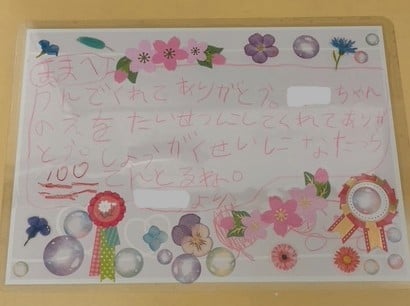 ままへ
うんでくれてありがとう。ちゃん
のえを たいせつにしてくれてありが
とう。しょうがくせいになたら
100 てんとるね。
より